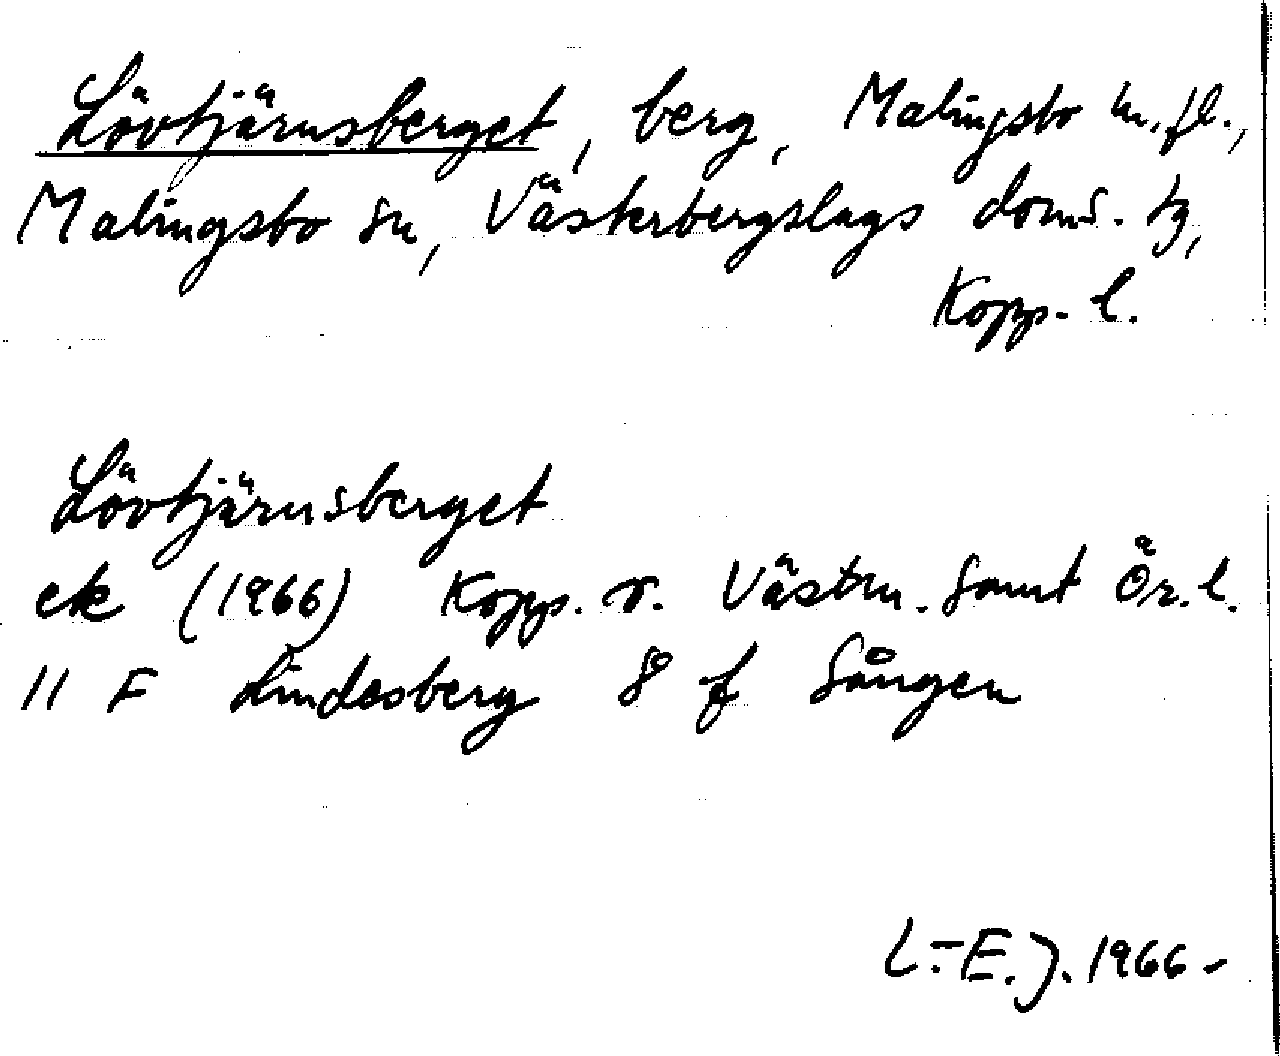 Lövtjärnsberget, berg, Malingsbo m.fl.,
Malingsbo sn, Västerbergslags doms. tg,
Kopp. l.
Lövtjärnsberget
ek (1966) Kopp. o. Västm. samt Ör. l.
11 F Lindesberg 8 f Sången
L.-E. J. 1966-